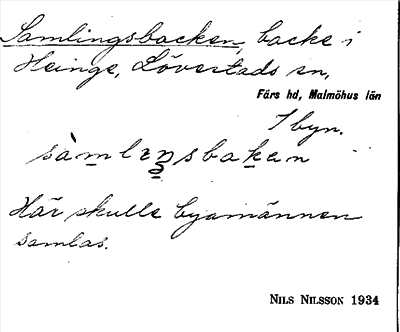 Samlingsbacken, backe i
Heinge, Lövestads sn,
Färs hd, Malmöhus län
I byn.
Här skulle byamännen
samlas.
NILS NILSSON 1934